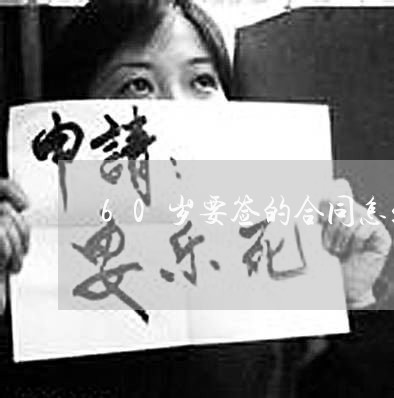 申請：
60岁要签的合同怎
要乐死